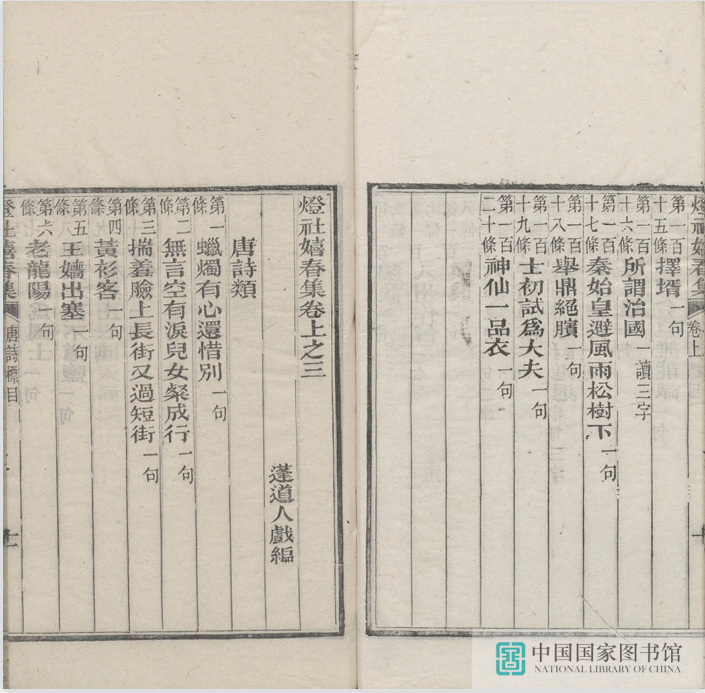 燈社嬉春集 卷上
第一百十五條 擇壻 一句
第一百十六條 所謂治國 一讀三字
第一百十七條 秦始皇避風雨松樹下 一句
第一百十八條 舉鼎絕臏 一句
第一百十九條 士初試爲大夫 一句
第一百二十條 神仙一品衣 一句
燈社嬉春集卷上之三
蓬道人戲編
唐詩類
第一條 蠟燭有心還惜別 一句
第二條 無言空有淚兒女粲成行 一句
第三條 揣羞臉上長街又過短街 一句
第四條 黃衫客 一句
第五條 王嬙出塞 一句
第六條 老龍陽 一句
燈社嬉春集 唐詩標目 十一
中国国家图书馆
NATIONAL LIBRARY OF CHINA